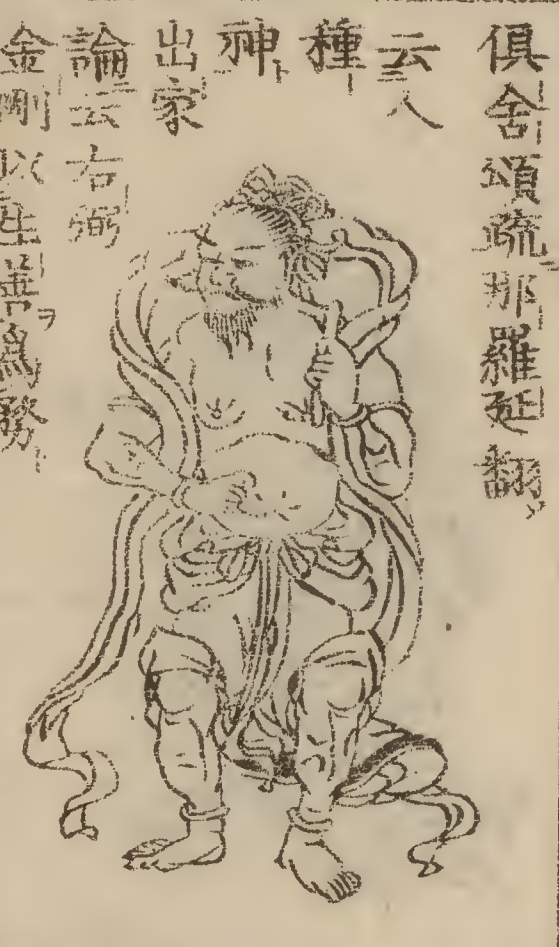 俱舎頌疏那羅延翻
云人
種
神
出家
論云右弼
金剛以生善爲務